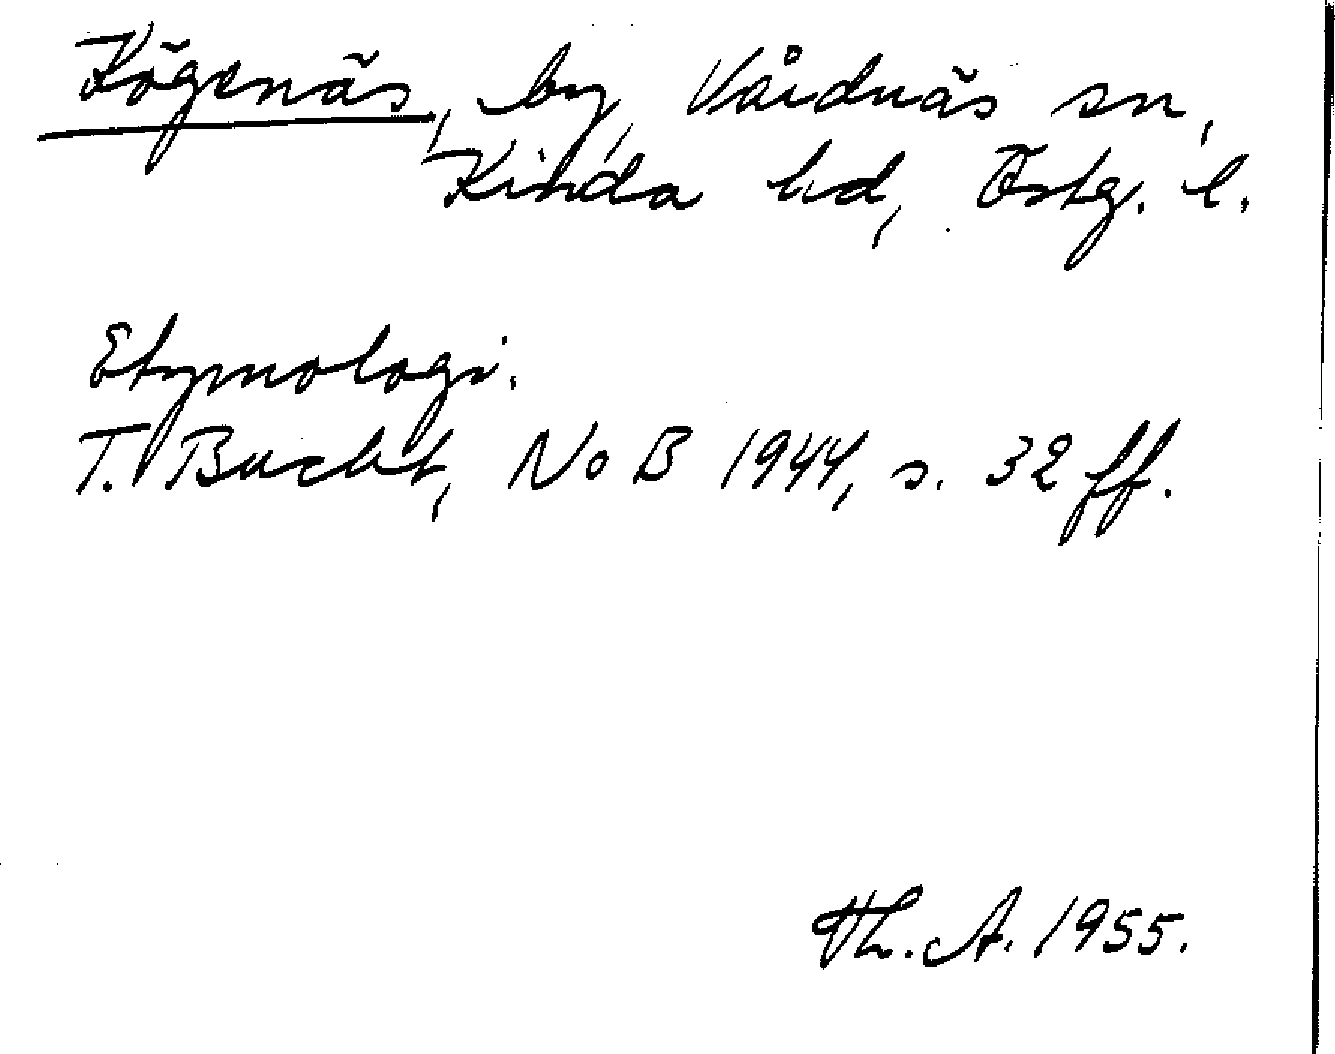 Kögenäs, by, Vårdnäs sn,
Kinda hd, Östg. l.
Etymologi.
T. Bucht, NoB 1944, s. 32 ff.
Th. A. 1955.